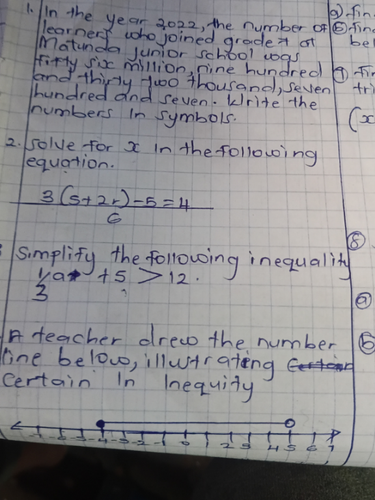 1. In the year 2022, the number of
learners who joined grade 7 at
Matunda junior school was
fifty six million, nine hundred
and thirty two thousand, seven
hundred and seven. Write the
numbers in symbols.
2. Solve for x in the following
equation.
3(5+2r)-5=4
6
Simplify the following inequality
1/3 a + 5 > 12.
A teacher drew the number
line below, illustrating
certain in Inequity
-4 -3 -2 -1 0 1 2 3 4 5 6 7
a) fin
b) fin
be
fin
tri
(x
8
a
b